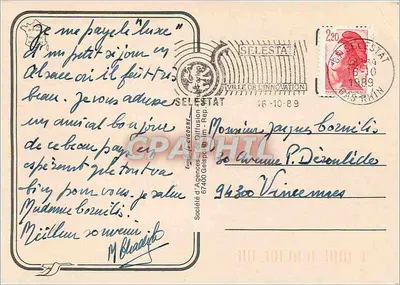 Je me paye le "luxe"
d'un petit séjour en
Alsace où il fait très
beau. Je vous adresse
un amical bonjour
de ce beau pays en
espérant que tout va
bien pour vous. Je salue
Madame Cornilis.
Meilleur souvenir
SELESTAT
VILLE DE L'INNOVATION
SELESTAT
16-10-89
2,20
67 SELESTAT
16-10
1989
BAS RHIN
Société d'Agences et de Diffusion
67400 Geispolsheim - Rep.
Monsieur Jacques Cornilis
30 Avenue P. Déroulède
94300 Vincennes
CPAPHIL